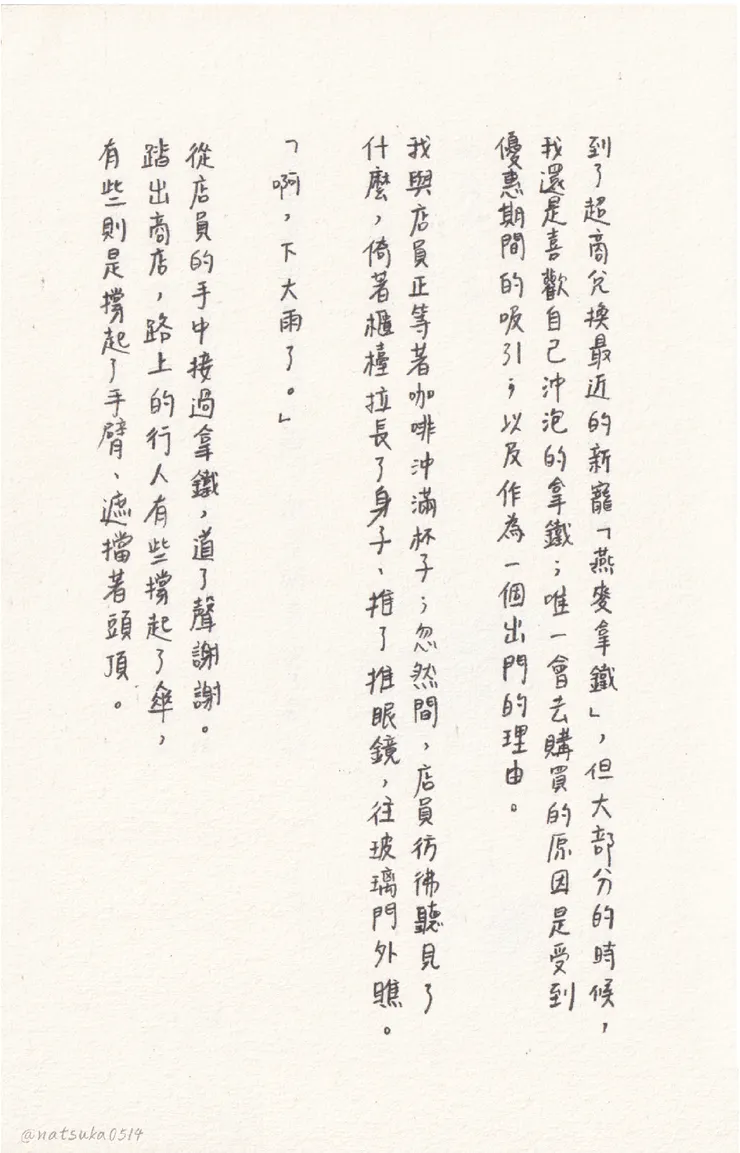 到了超商兌換最近的新寵「燕麥拿鐵」，但大部分的時候，
我還是喜歡自己沖泡的拿鐵；唯一會去購買的原因是受到
優惠期間的吸引；以及作為一個出門的理由。
我與店員正等著咖啡沖滿杯子；忽然間，店員彷彿聽見了
什麼，倚著櫃檯拉長了身子、推了推眼鏡，往玻璃門外瞧。
「啊，下大雨了。」
從店員的手中接過拿鐵，道了聲謝謝。
踏出商店，路上的行人有些撐起了傘，
有些則是撐起了手臂、遮擋著頭頂。
@natsuka0514